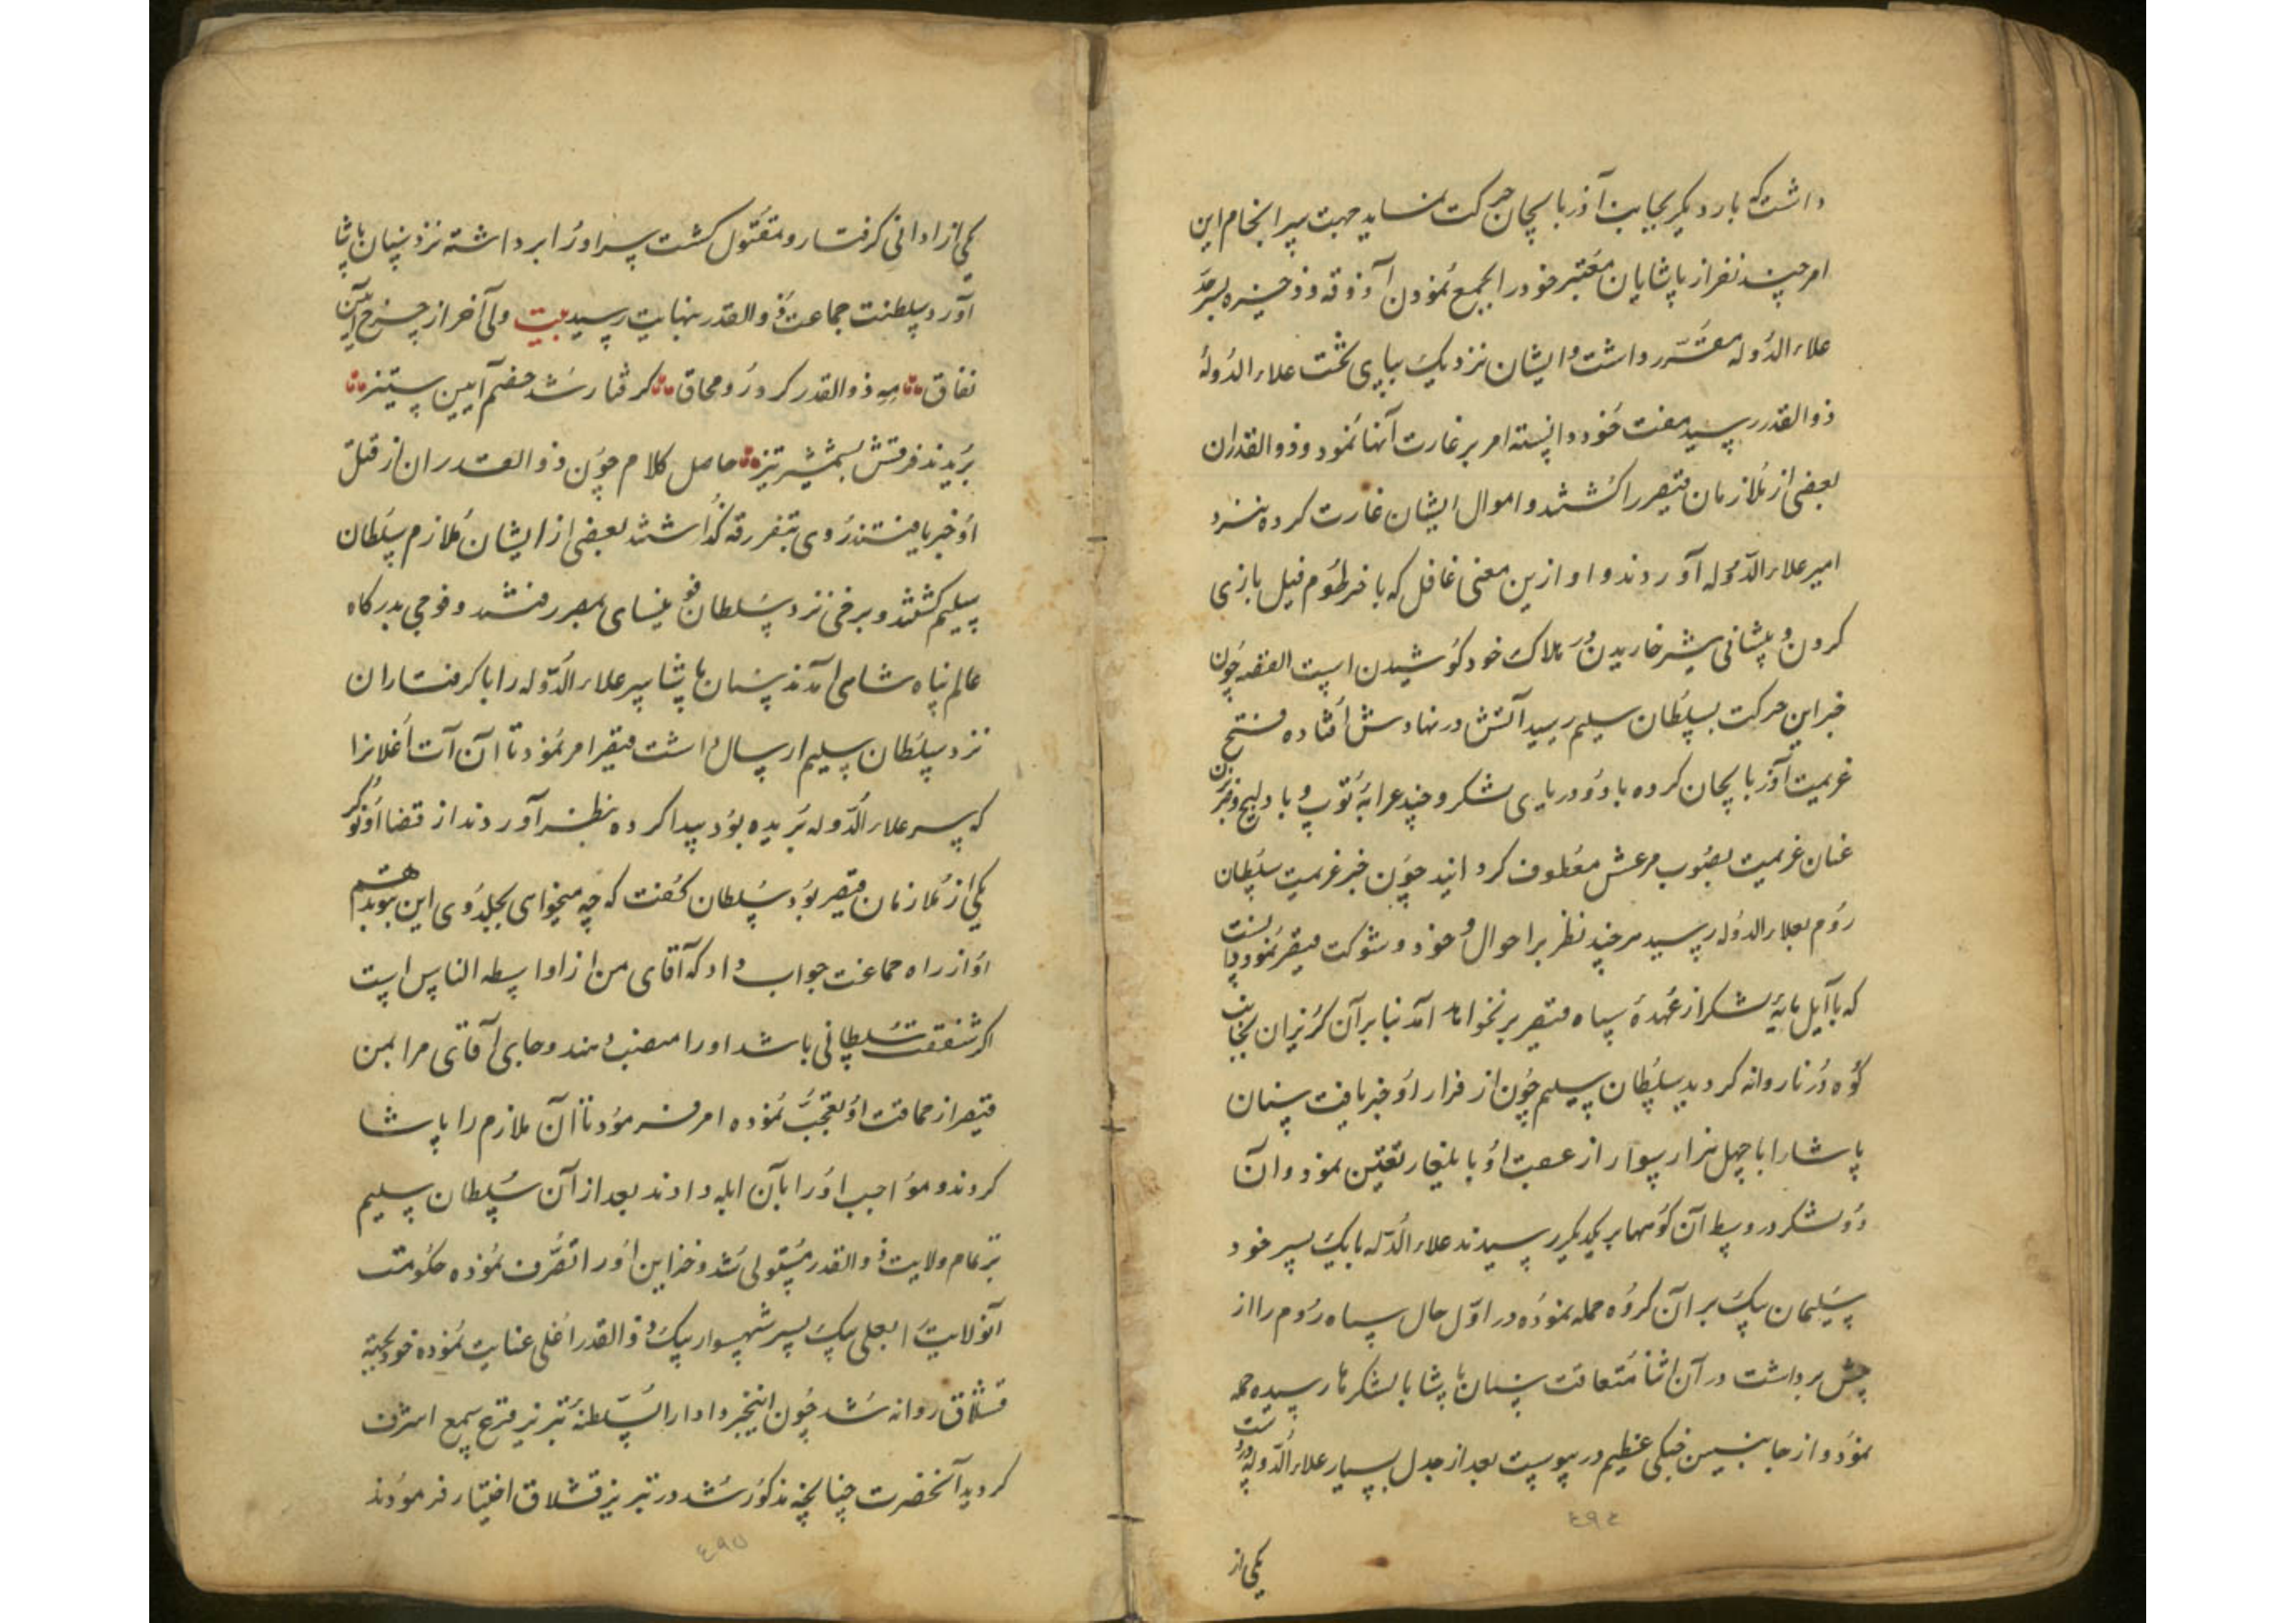 داشت که بار دیگر بجانب آذربایجان حرکت نماید جهت سرانجام این
امر چند نفر از پاشایان معتبر خود را بجمع نمودن آذوقه و ذخیره بسرحد
علاء الدوله مقرر داشت و ایشان نزدیک بپای تخت علاء الدوله
ذوالقدر رسید مفت خود دانسته امر بر غارت آنها نمود و ذوالقدران
بعضی از ملازمان قیصر را کشتند و اموال ایشان غارت کرده نزد
امیر علاء الدوله آوردند و او ازین معنی غافل که با خرطوم فیل بازی
کردن و پیشانی شیر خاریدن در هلاک خود کوشیدن است القصه چون
خبر این حرکت بسلطان سلیم رسید آتش در نهادش افتاده فسخ
عزیمت آذربایجان کرده با دو دریای لشکر و چند عرابه توپ و بادلیج و ضربزن
عنان عزیمت بصوب مرعش معطوف گردانید چون خبر عزیمت سلطان
روم بعلاء الدوله رسید هرچند نظر بر احوال خود و شوکت قیصر نمود دانست
که با آیل مایه لشکر از عهده سپاه قیصر بر نخواهد آمد بنا بر آن گریزان بجانب
کوه درنا روانه گردید سلطان سلیم چون از فرار او خبر یافت سنان
پاشا را با چهل هزار سوار از عقب او بایلغار تعیین نمود و آن
دو لشکر در وسط آن کوهها بر یکدیگر رسیدند علاء الدوله با یک پسر خود
سلیمان بیک بر آن گروه حمله نموده در اول حال سپاه روم را از
پیش برداشت در آن اثنا متعاقب سنان پاشا با لشکرها رسیده حمله
نمود و از جانبین جنگی عظیم در پیوست بعد از جدل بسیار علاء الدوله بدست
٤٩٤
یکی از
یکی از ادانی گرفتار و مقتول گشت سر او را برداشته نزد سنان پاشا
آورد و سلطنت جماعت ذوالقدر بنهایت رسید بیت ولی آخر از چرخ آیین
نفاق مه ذوالقدر کرد رو در محاق گرفتار شد خصم آیین ستیز
بریدند فرقش بشمشیر تیز حاصل کلام چون ذوالقدران از قتل
او خبر یافتند روی بتفرقه گذاشتند بعضی از ایشان ملازم سلطان
سلیم گشتند و برخی نزد سلطان قونیسای بمصر رفتند و فوجی بدرگاه
عالم پناه شاهی آمدند سنان پاشا سر علاء الدوله را با گرفتاران
نزد سلطان سلیم ارسال داشت قیصر امر نمود تا آن آت اغلانرا
که سر علاء الدوله بریده بود پیدا کرده بنظر آوردند از قضا او نوکر
یکی از ملازمان قیصر بود سلطان گفت که چه میخواهی بجلدوی این بتو بدهم
او از راه حماقت جواب داد که آقای من از اواسطه الناس است
اگر شفقت سلطانی باشد او را منصب دهند و جای آقای مرا بمن
قیصر از حماقت او تعجب نموده امر فرمود تا آن ملازم را پاشا
کردند و مواجب او را بآن ابله دادند بعد از آن سلطان سلیم
بر تمام ولایت ذوالقدر مستولی شد و خزاین او را تصرف نموده حکومت
آنولایت را بعلی بیک پسر شهسوار بیک ذوالقدر اغلی عنایت نموده خود بجهة
قشلاق روانه شد چون اینخبر در دارالسلطنه تبریز قرع سمع اشرف
گردید آنحضرت چنانچه مذکور شد در تبریز قشلاق اختیار فرمودند
٤٩٥